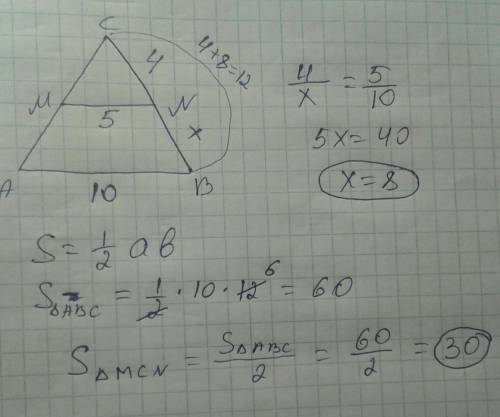 C
4
4+8=12
M
5
N
x
A
10
B
4/x = 5/10
5x=40
x=8
S=1/2 ab
S△ABC = 1/2 · 10 · 12 6 = 60
S△MCN = S△ABC/2 = 60/2 = 30